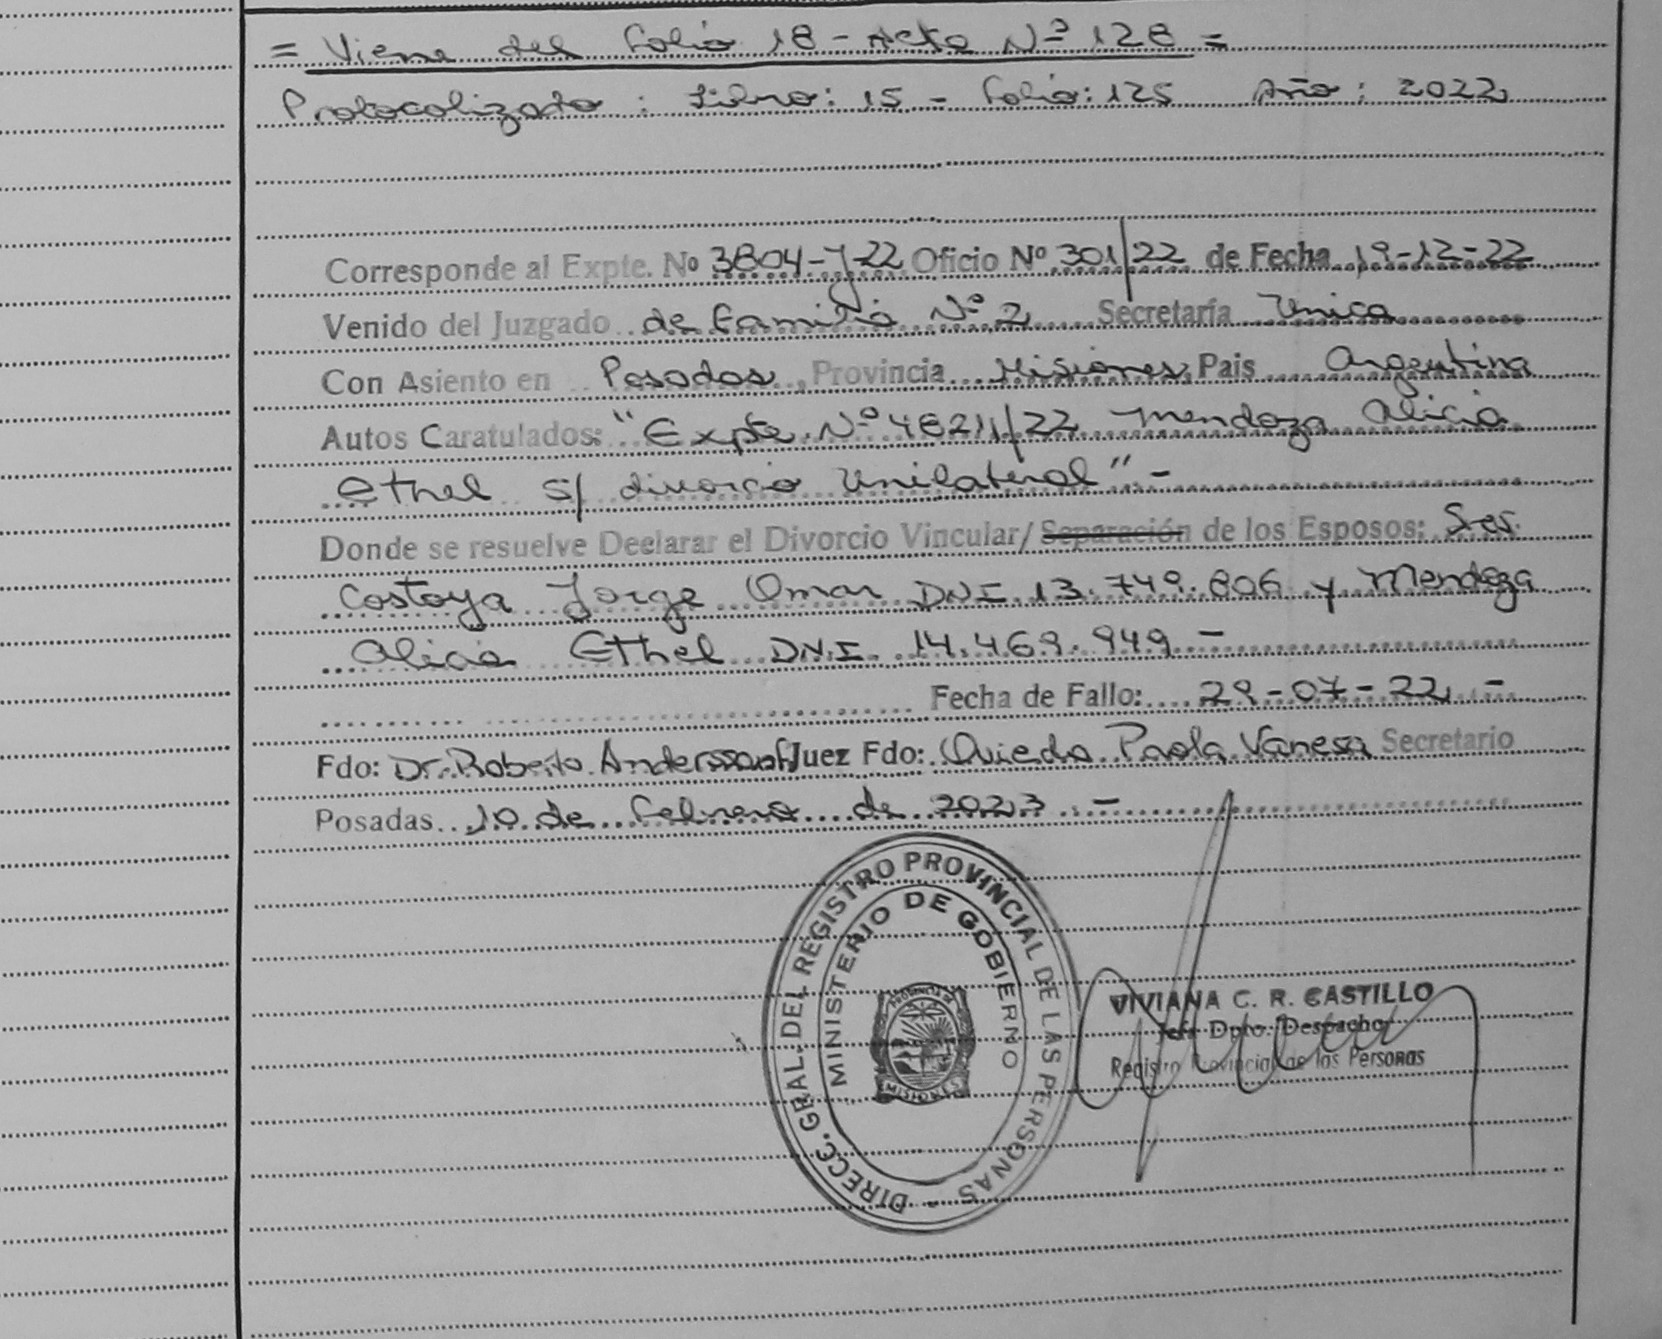 = Viene del folio 18 - Acta Nº 128 =
Protocolizado : Libro: 15 - folio: 125 Año : 2022
Corresponde al Expte. Nº 3804-J-22 Oficio Nº 301/22 de Fecha 19-12-22
Venido del Juzgado de familia Nº 2 Secretaría Unica
Con Asiento en Posadas, Provincia Misiones, Pais Argentina
Autos Caratulados: "Expte. Nº 48211/22 Mendoza Alicia
Ethel s/ divorcio Unilateral" -
Donde se resuelve Declarar el Divorcio Vincular/ Separación de los Esposos: Sres.
Costoya Jorge Omar DNI 13.749.806 y Mendoza
Alicia Ethel DNI. 14.469.949 -
Fecha de Fallo: 29-07-22 -
Fdo: Dr. Roberto Andersson f Juez Fdo: Oviedo Paola Vanesa Secretario
Posadas 10 de febrero de 2023 -
DIRECC. GRAL. DEL REGISTRO PROVINCIAL DE LAS PERSONAS -
MINISTERIO DE GOBIERNO
PROVINCIA DE
MISIONES
VIVIANA C. R. CASTILLO
Jefe Dpto. Despacho
Registro Provincial de las Personas